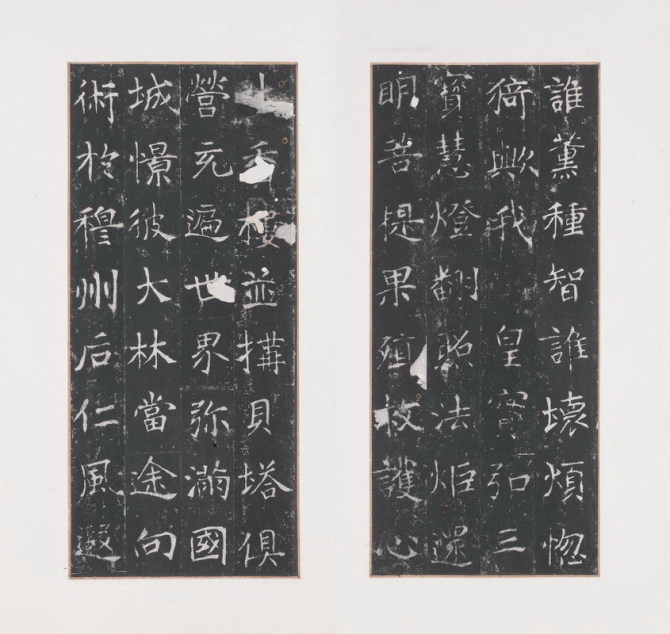 誰薰種智誰壞煩惚
猗歟我皇寔弘三
寳慧燈翻照法炬還
明菩提果殖救護心
香樓並搆貝塔俱
營充遍世界弥滿國
城憬彼大林當途向
術於穆州后仁風遐